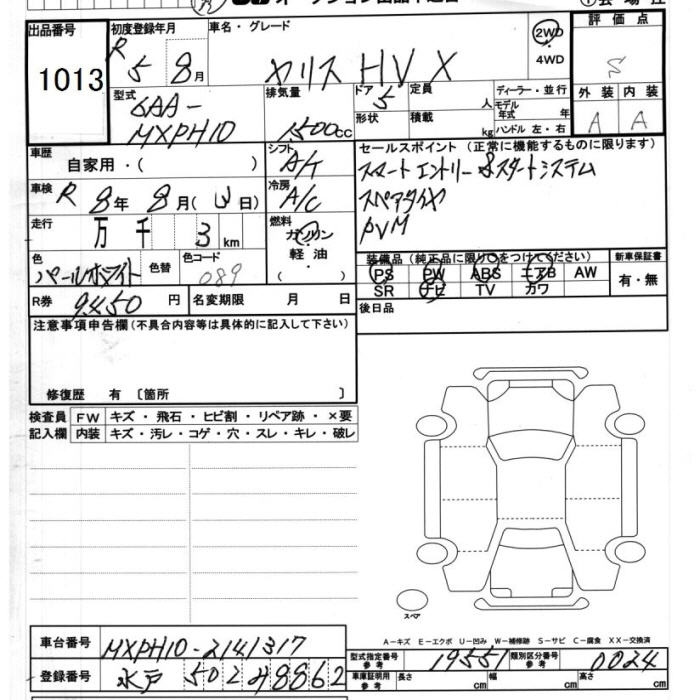 出品番号
1013
初度登録年月
R 5 8月
車名・グレード
ヤリス HV X
2WD
・
4WD
評価点
S
外装 内装
A A
型式
6AA-
MXPH10
排気量
1500cc
ドア 5
形状
定員 人
積載 kg
ディーラー・並行
モデル年式 年
ハンドル 左・右
車歴
自家用・( )
シフト
A/T
セールスポイント(正常に機能するものに限ります)
スマートエントリー&スタートシステム
スペアタイヤ
PVM
車検
R 8年 8月( 日)
冷房
A/C
走行
万 千 3 km
燃料
ガソリン
軽油・
( )
色
パールホワイト
色替
色コード
089
装備品(純正品に限り○をつけてください)
PS PW ABS エアB AW
SR ナビ TV カワ
新車保証書
有・無
R券
9450 円
名変期限 月 日
後日品
注意事項申告欄(不具合内容等は具体的に記入して下さい)
修復歴 有 〔箇所 〕
検査員
記入欄
FW キズ・飛石・ヒビ割・リペア跡・×要
内装 キズ・汚レ・コゲ・穴・スレ・キレ・破レ
スペア
A-キズ E-エクボ U-凹み W-補修跡 S-サビ C-腐食 XX-交換済
車台番号
MXPH10-2141317
登録番号
水戸 502 ま 8862
型式指定番号
参考
19551
類別区分番号
参考
0024
車庫証明用
参考
長さ cm
幅 cm
高さ cm